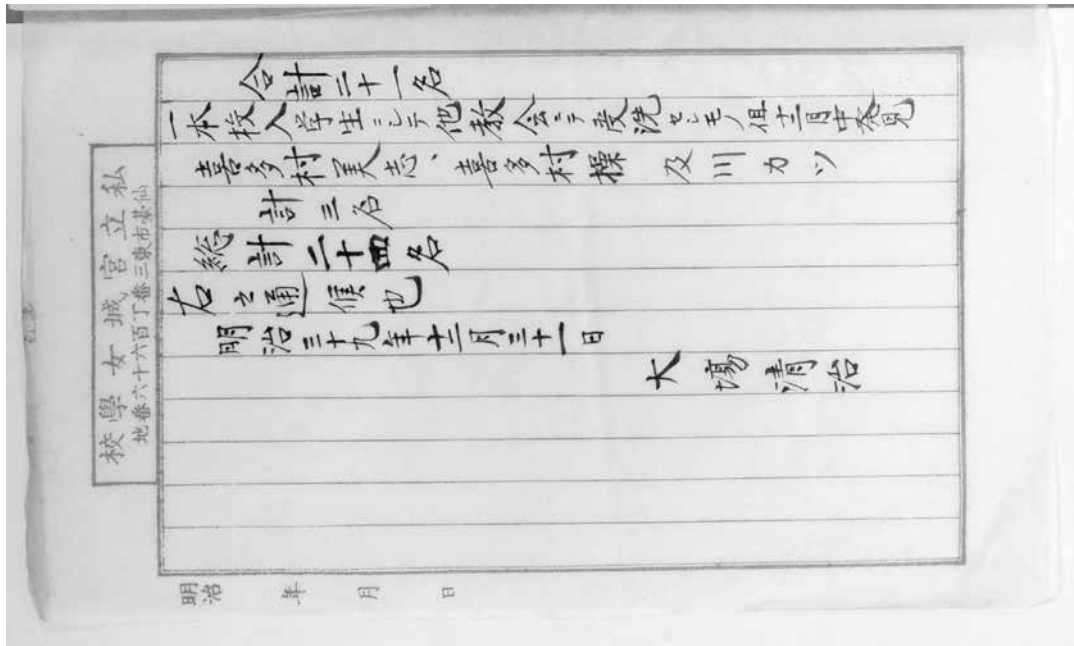 合計二十一名
一本校入学生ニシテ他教会ニテ受洗セシモノ但十二月中発見
喜多村美志、喜多村操 及川カツ
計三名
総計二十四名
右之通候也
明治三十九年十二月三十一日
大場清治
私立宮城女學校
仙臺市東三番丁百六十六番地
明治 年 月 日